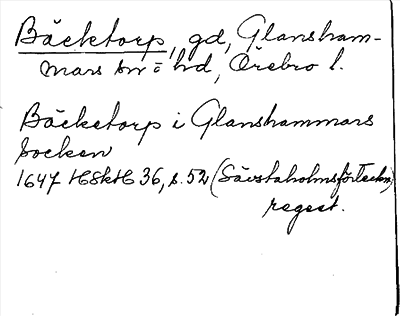 Bäcketorp, gd, Glansham-
mars sn o hd, Örebro l.
Bäcketorp i Glanshammars
socken
1647 HSkH 36, s. 52 (Sävstaholmsförteckn)
regest.